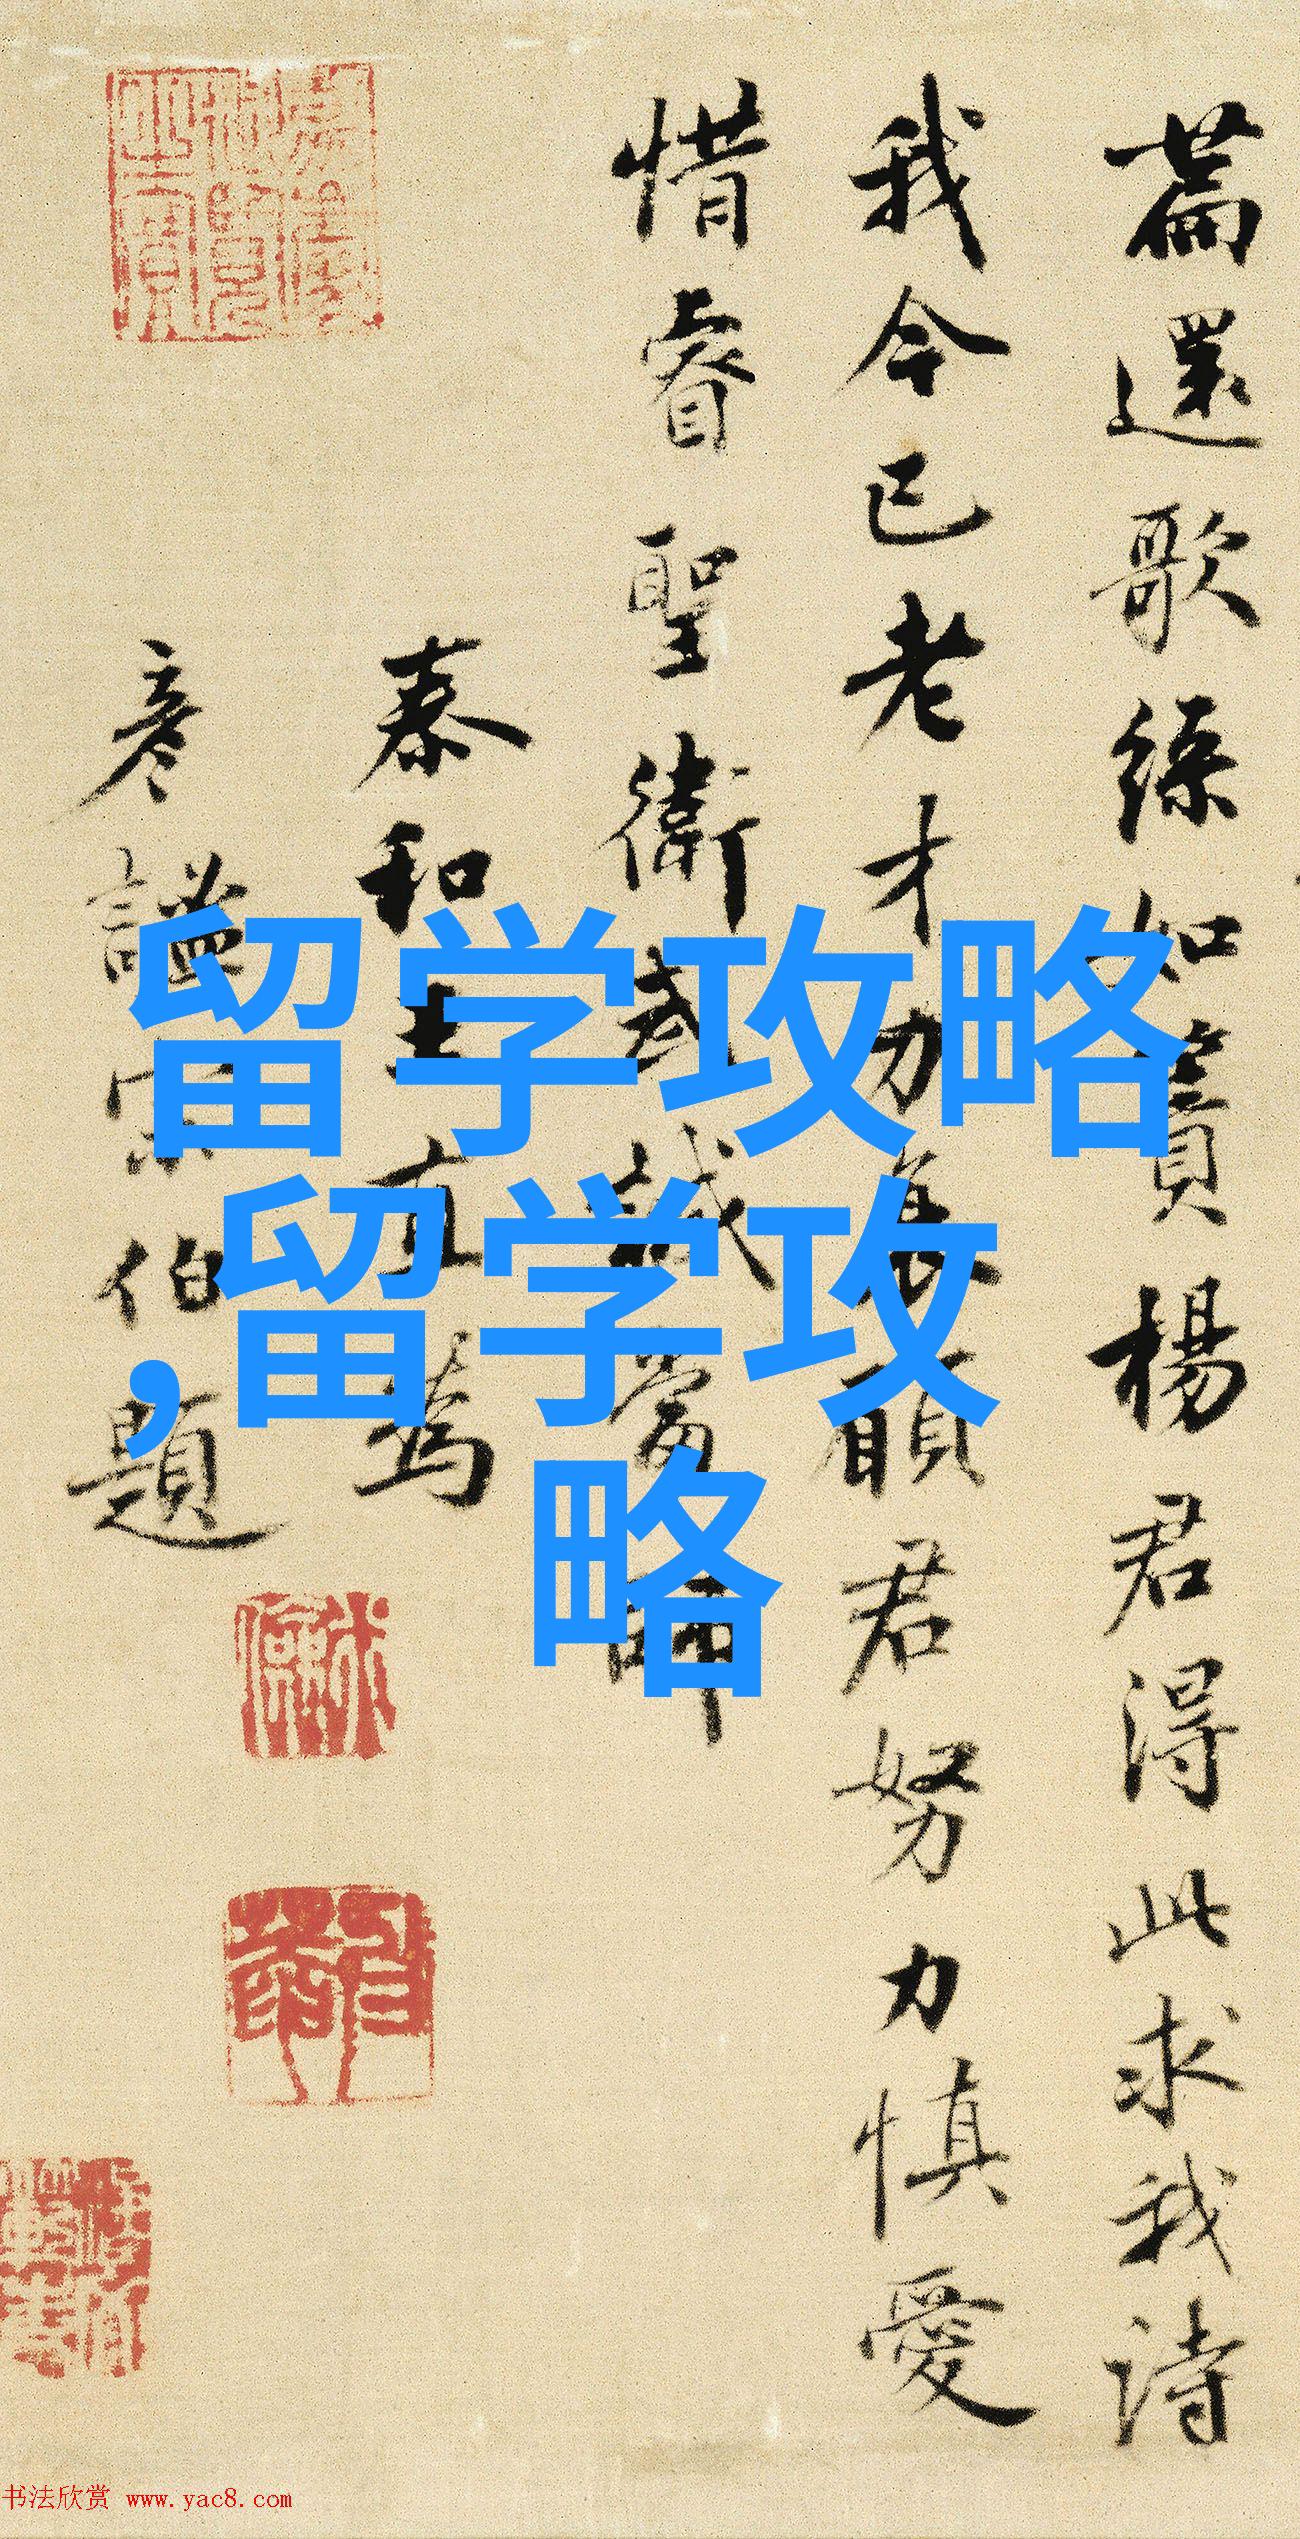 篇還歌練如
寶楊君得此求我詩
我今已老才力
願君努力慎愛
惜睿聖衛武
泰和
王直為
彥謐宗伯題
留学攻略
,留学攻
略
书法欣赏 www.yac8.com